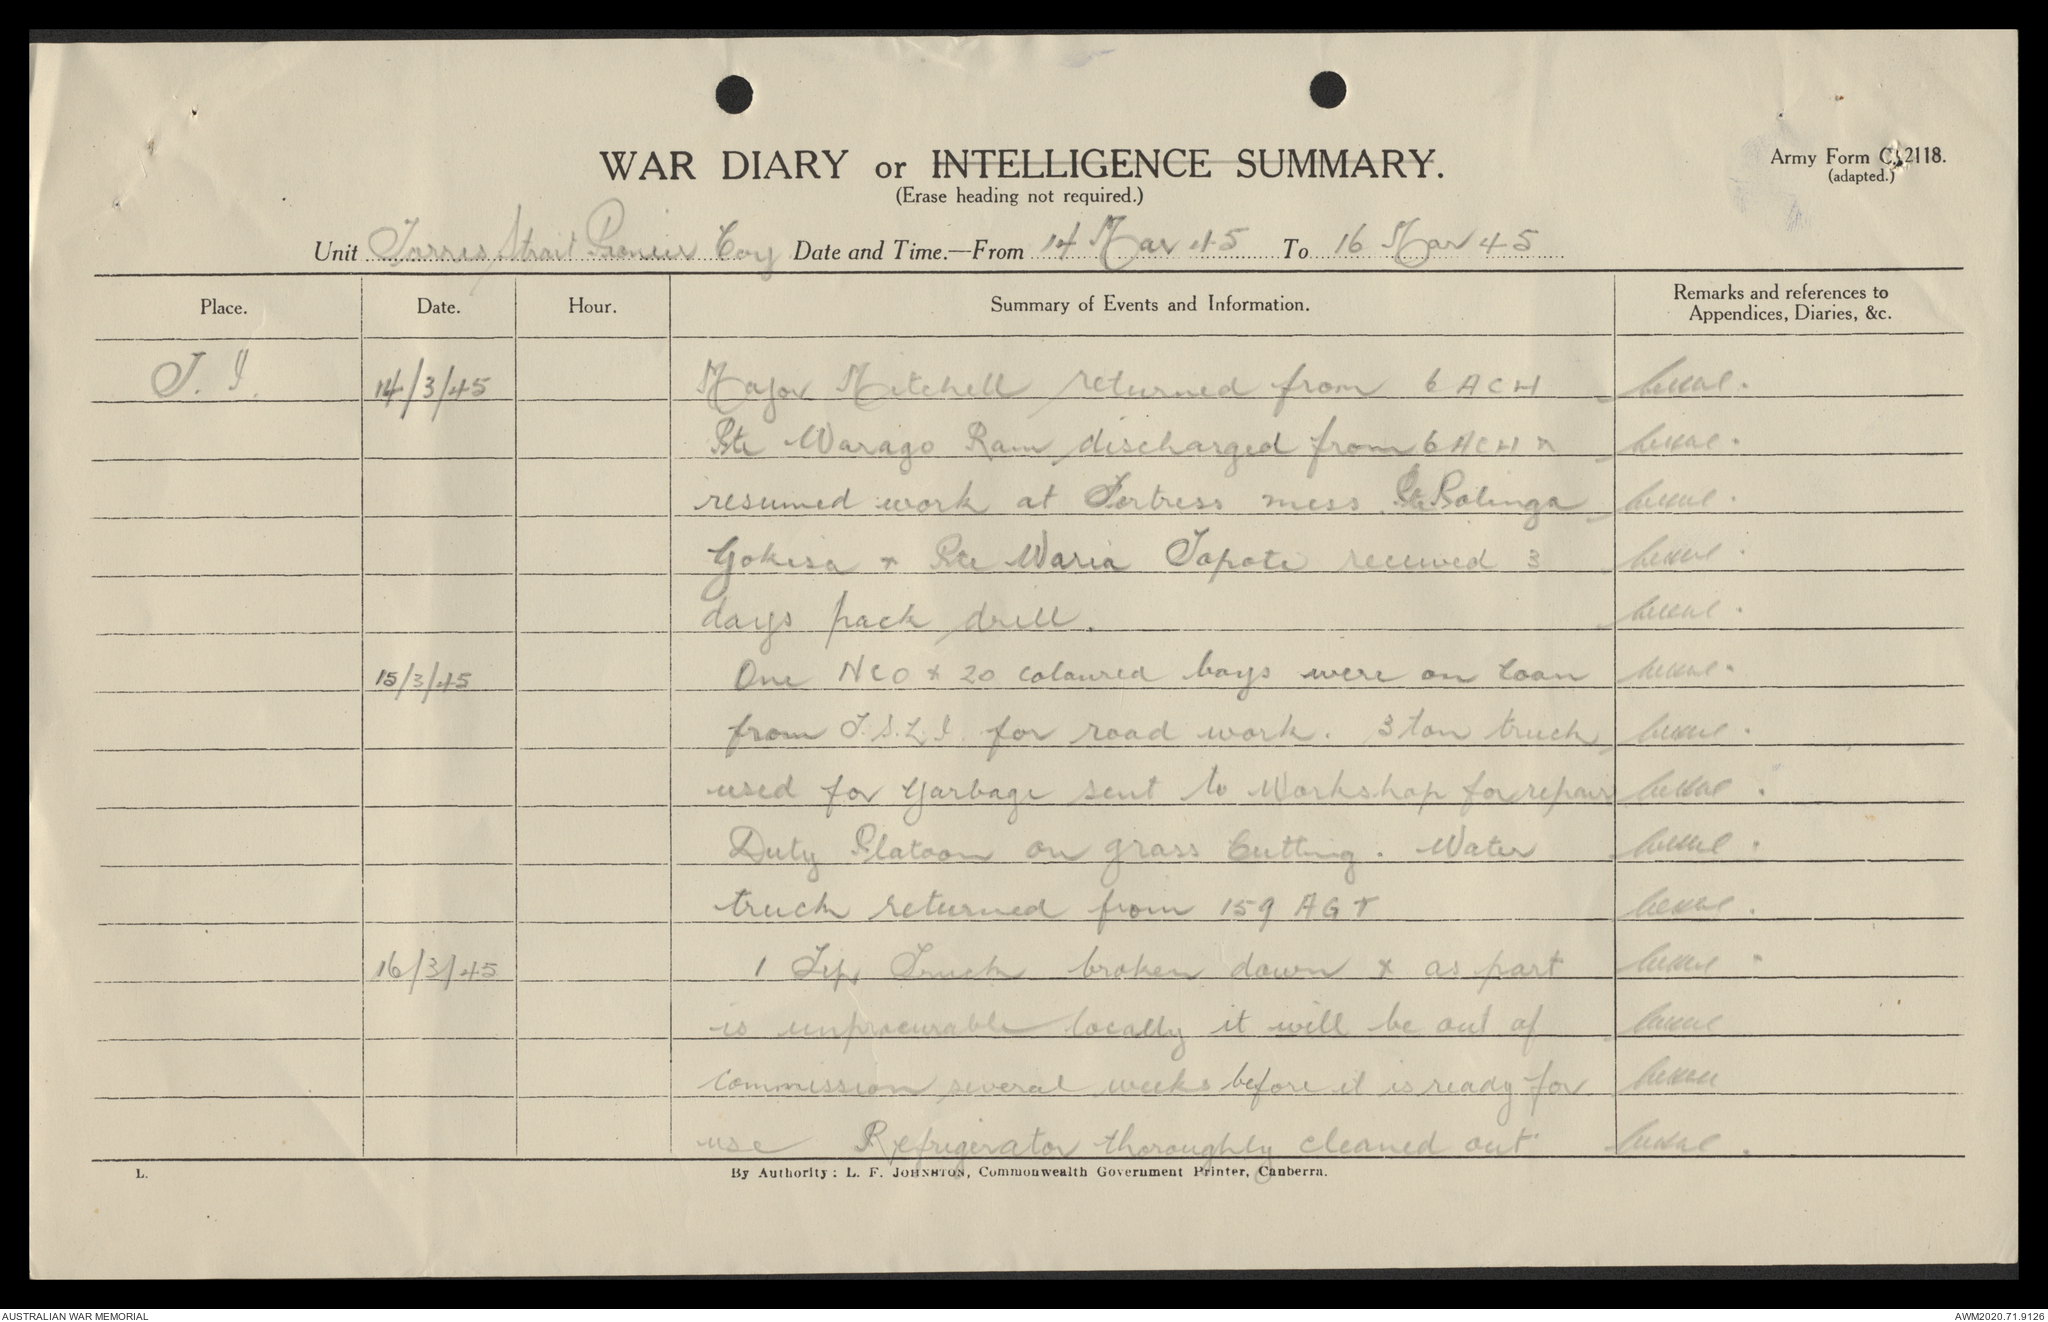 WAR DIARY or INTELLIGENCE SUMMARY.
(Erase heading not required.)
Army Form C. 2118.
(adapted.)
Unit Torres Strait Pioneer Coy Date and Time.—From 14 Mar 45 To 16 Mar 45
Place. Date. Hour. Summary of Events and Information. Remarks and references to Appendices, Diaries, &c.
T. I. 14/3/45 Major Mitchell returned from 6 ACH
Pte Warago Ram discharged from 6 ACH &
resumed work at Fortress mess. Pte
Gokisa & Pte Waria Tapoti received 3
days pack drill.
15/3/45 One NCO & 20 coloured boys were on loan
from T.S.L.I. for road work. 3 ton truck
used for Garbage sent to Workshop for repair
Duty Platoon on grass Cutting. Water
truck returned from 159 AGT
16/3/45 1 Tip Truck broken down & as part
is unprocurable locally it will be out of
commission several weeks before it is ready for
use Refrigerator thoroughly cleaned out
L. By Authority: L. F. JOHNSTON, Commonwealth Government Printer, Canberra.
AUSTRALIAN WAR MEMORIAL AWM2020.71.9126